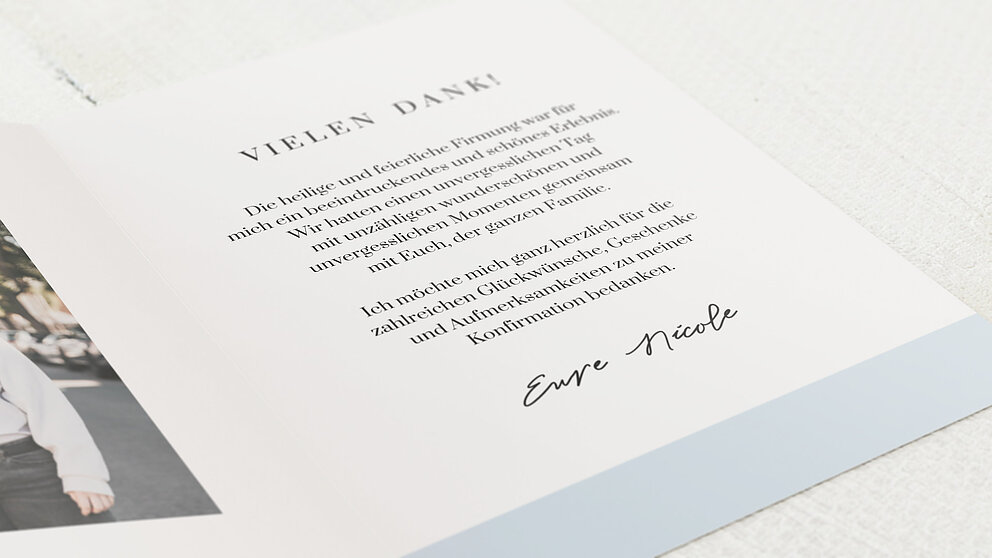 VIELEN DANK!
Die heilige und feierliche Firmung war für
mich ein beeindruckendes und schönes Erlebnis.
Wir hatten einen unvergesslichen Tag
mit unzähligen wunderschönen und
unvergesslichen Momenten gemeinsam
mit Euch, der ganzen Familie.
Ich möchte mich ganz herzlich für die
zahlreichen Glückwünsche, Geschenke
und Aufmerksamkeiten zu meiner
Konfirmation bedanken.
Eure Nicole